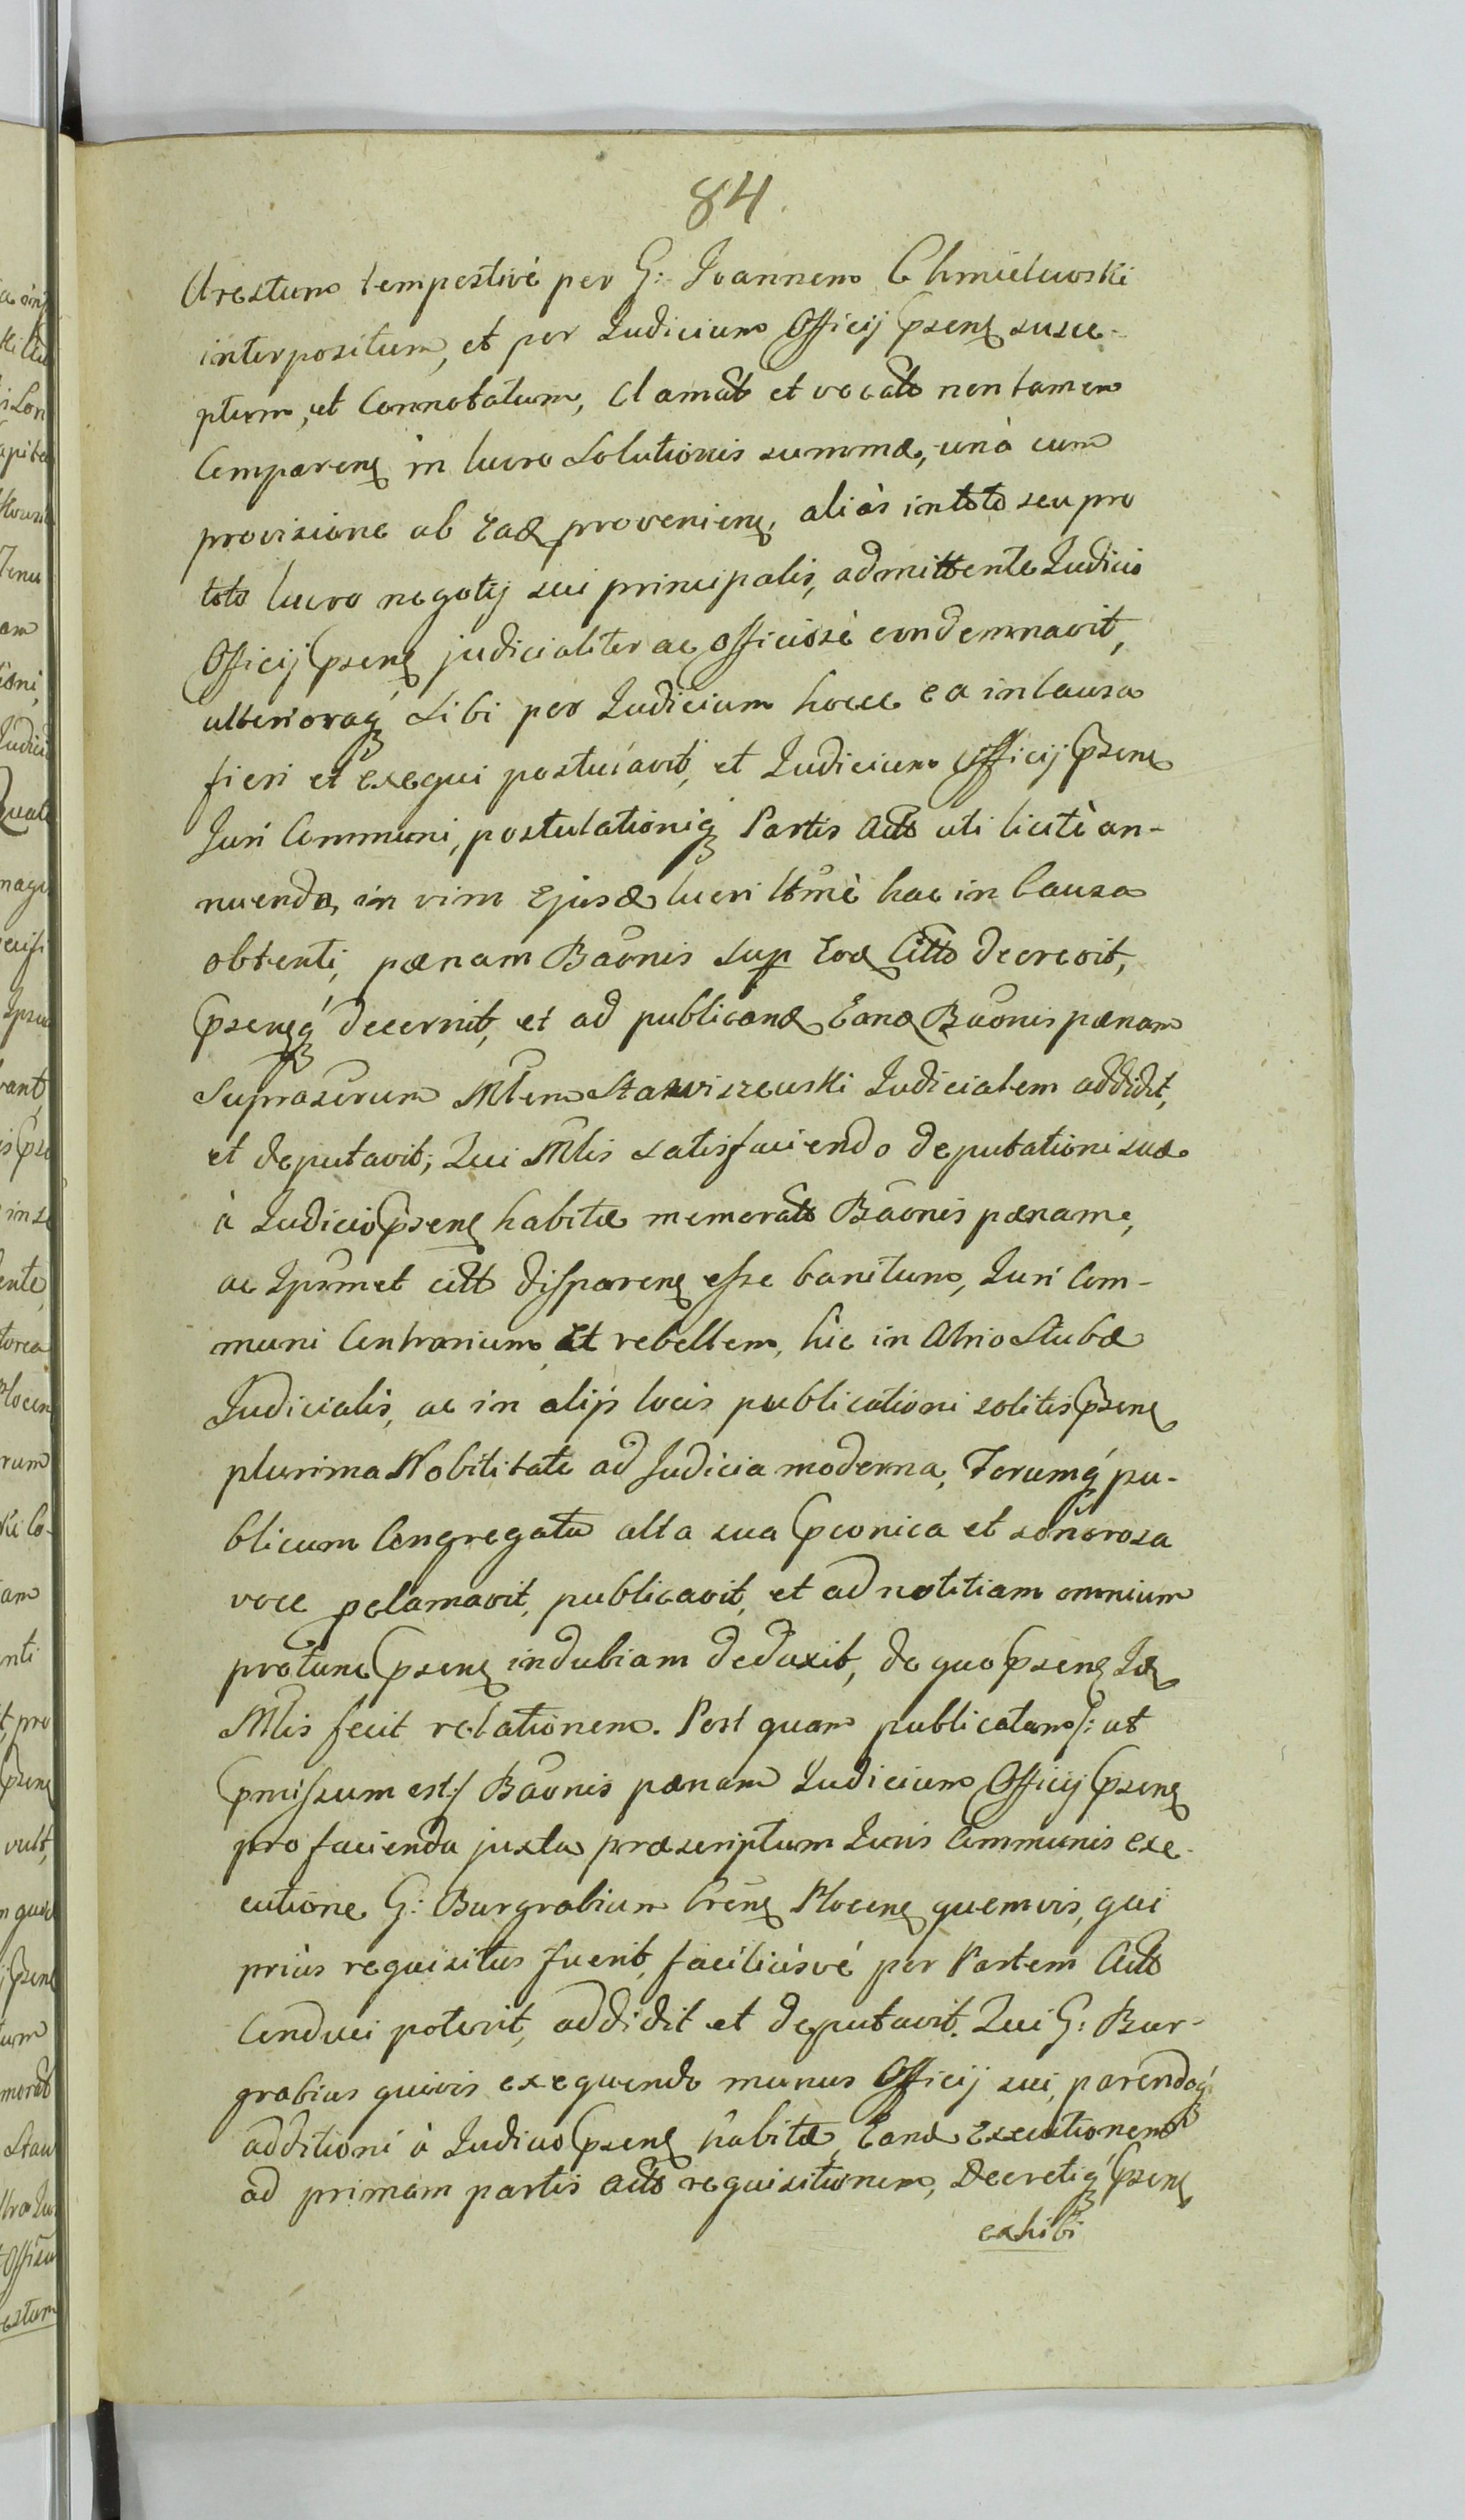 84.
Arestum tempestivè per G: Joannem Chmielewski
interpositum, et per Judicium Officij Psens susce-
ptum, et Connotatum, Clamat et vocat non tamen
Comparens in lucro Solutionis summæ, unà cum
provisione ab Ead proveniens, aliàs in toto seu pro
toto lucro negotij sui principalis, admittente Judicio
Officij Psens judicialiter ac officiosè condemnavit,
ulterioraq sibi per Judicium hocce ea in Causa
fieri et exequi postulavit, et Judicium Officij Psens
Juri Communi, postulationiq Partis Act uti licitè an-
nuendo, in vim Ejusd lucri ltimè hac in Causa
obtenti, pænam Baonis sup Eod Citto decrevit,
Psensq decernit, et ad publicand Eand Baonis pænam
Suprascrum Mlem Stawiszewski Judicialem addidit,
et deputavit; Qui Mlis satisfaciendo deputationi suæ
à Judicio Psens habitæ memorat Baonis pænam,
ac Ipsmet citt disparens esse banitum, Juri Com-
muni Contrarium et rebellem, hic in Atrio Stubæ
Judicialis, ac in alijs locis publicationi solitis Psens
plurima Nobilitate ad Judicia moderna, Forumq pu-
blicum Congregata alta sua Pconica et sonorosa
voce pclamavit, publicavit, et ad notitiam omnium
protunc Psens indubiam deduxit, de quo Psens Id
Mlis fecit relationem. Post quam publicatam /: ut
Pmissum est :/ Baonis pænam Judicium Officij Psens
pro facienda juxta præscriptum Juris Communis exe-
cutione G: Burgrabium Crens Plocens quemvis, qui
priùs requisitus fuerit, faciliùsvè per Partem Act
Conduci poterit, addidit et deputavit. Qui G: Bur-
grabius quivis exequendo munus Officij sui, parendoq
additioni à Judicio Psens habitæ, Eand Executionem
ad primam partis Act requisitionem, Decretiq Psens
exhibi